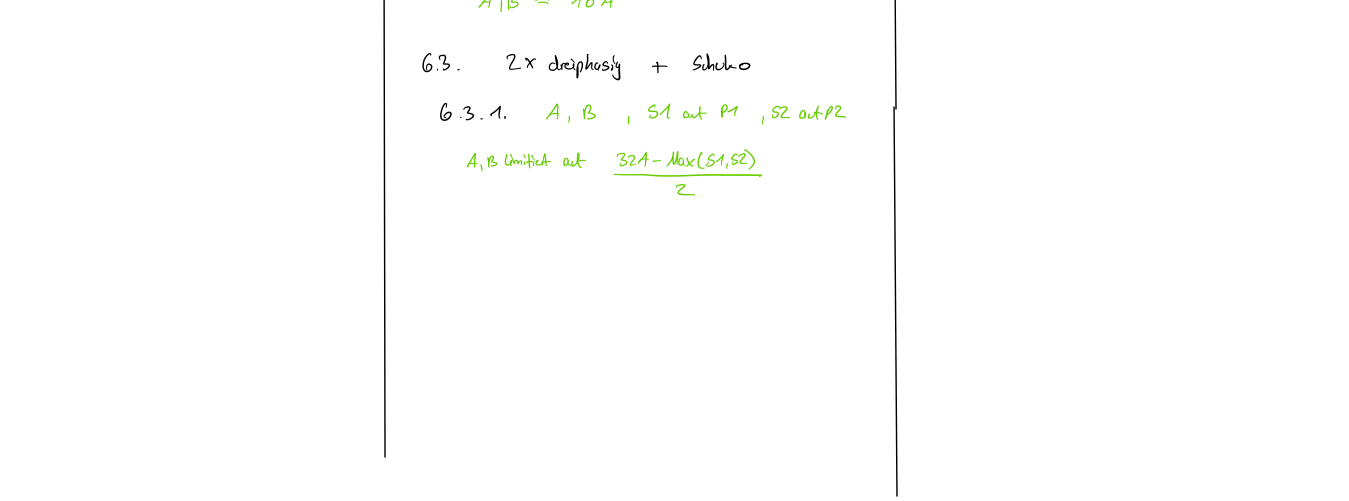 A,B = 16A
6.3. 2x dreiphasig + Schuko
6.3.1. A, B , S1 auf P1 , S2 auf P2
A,B limitiert auf 32A - Max(S1,S2)
2